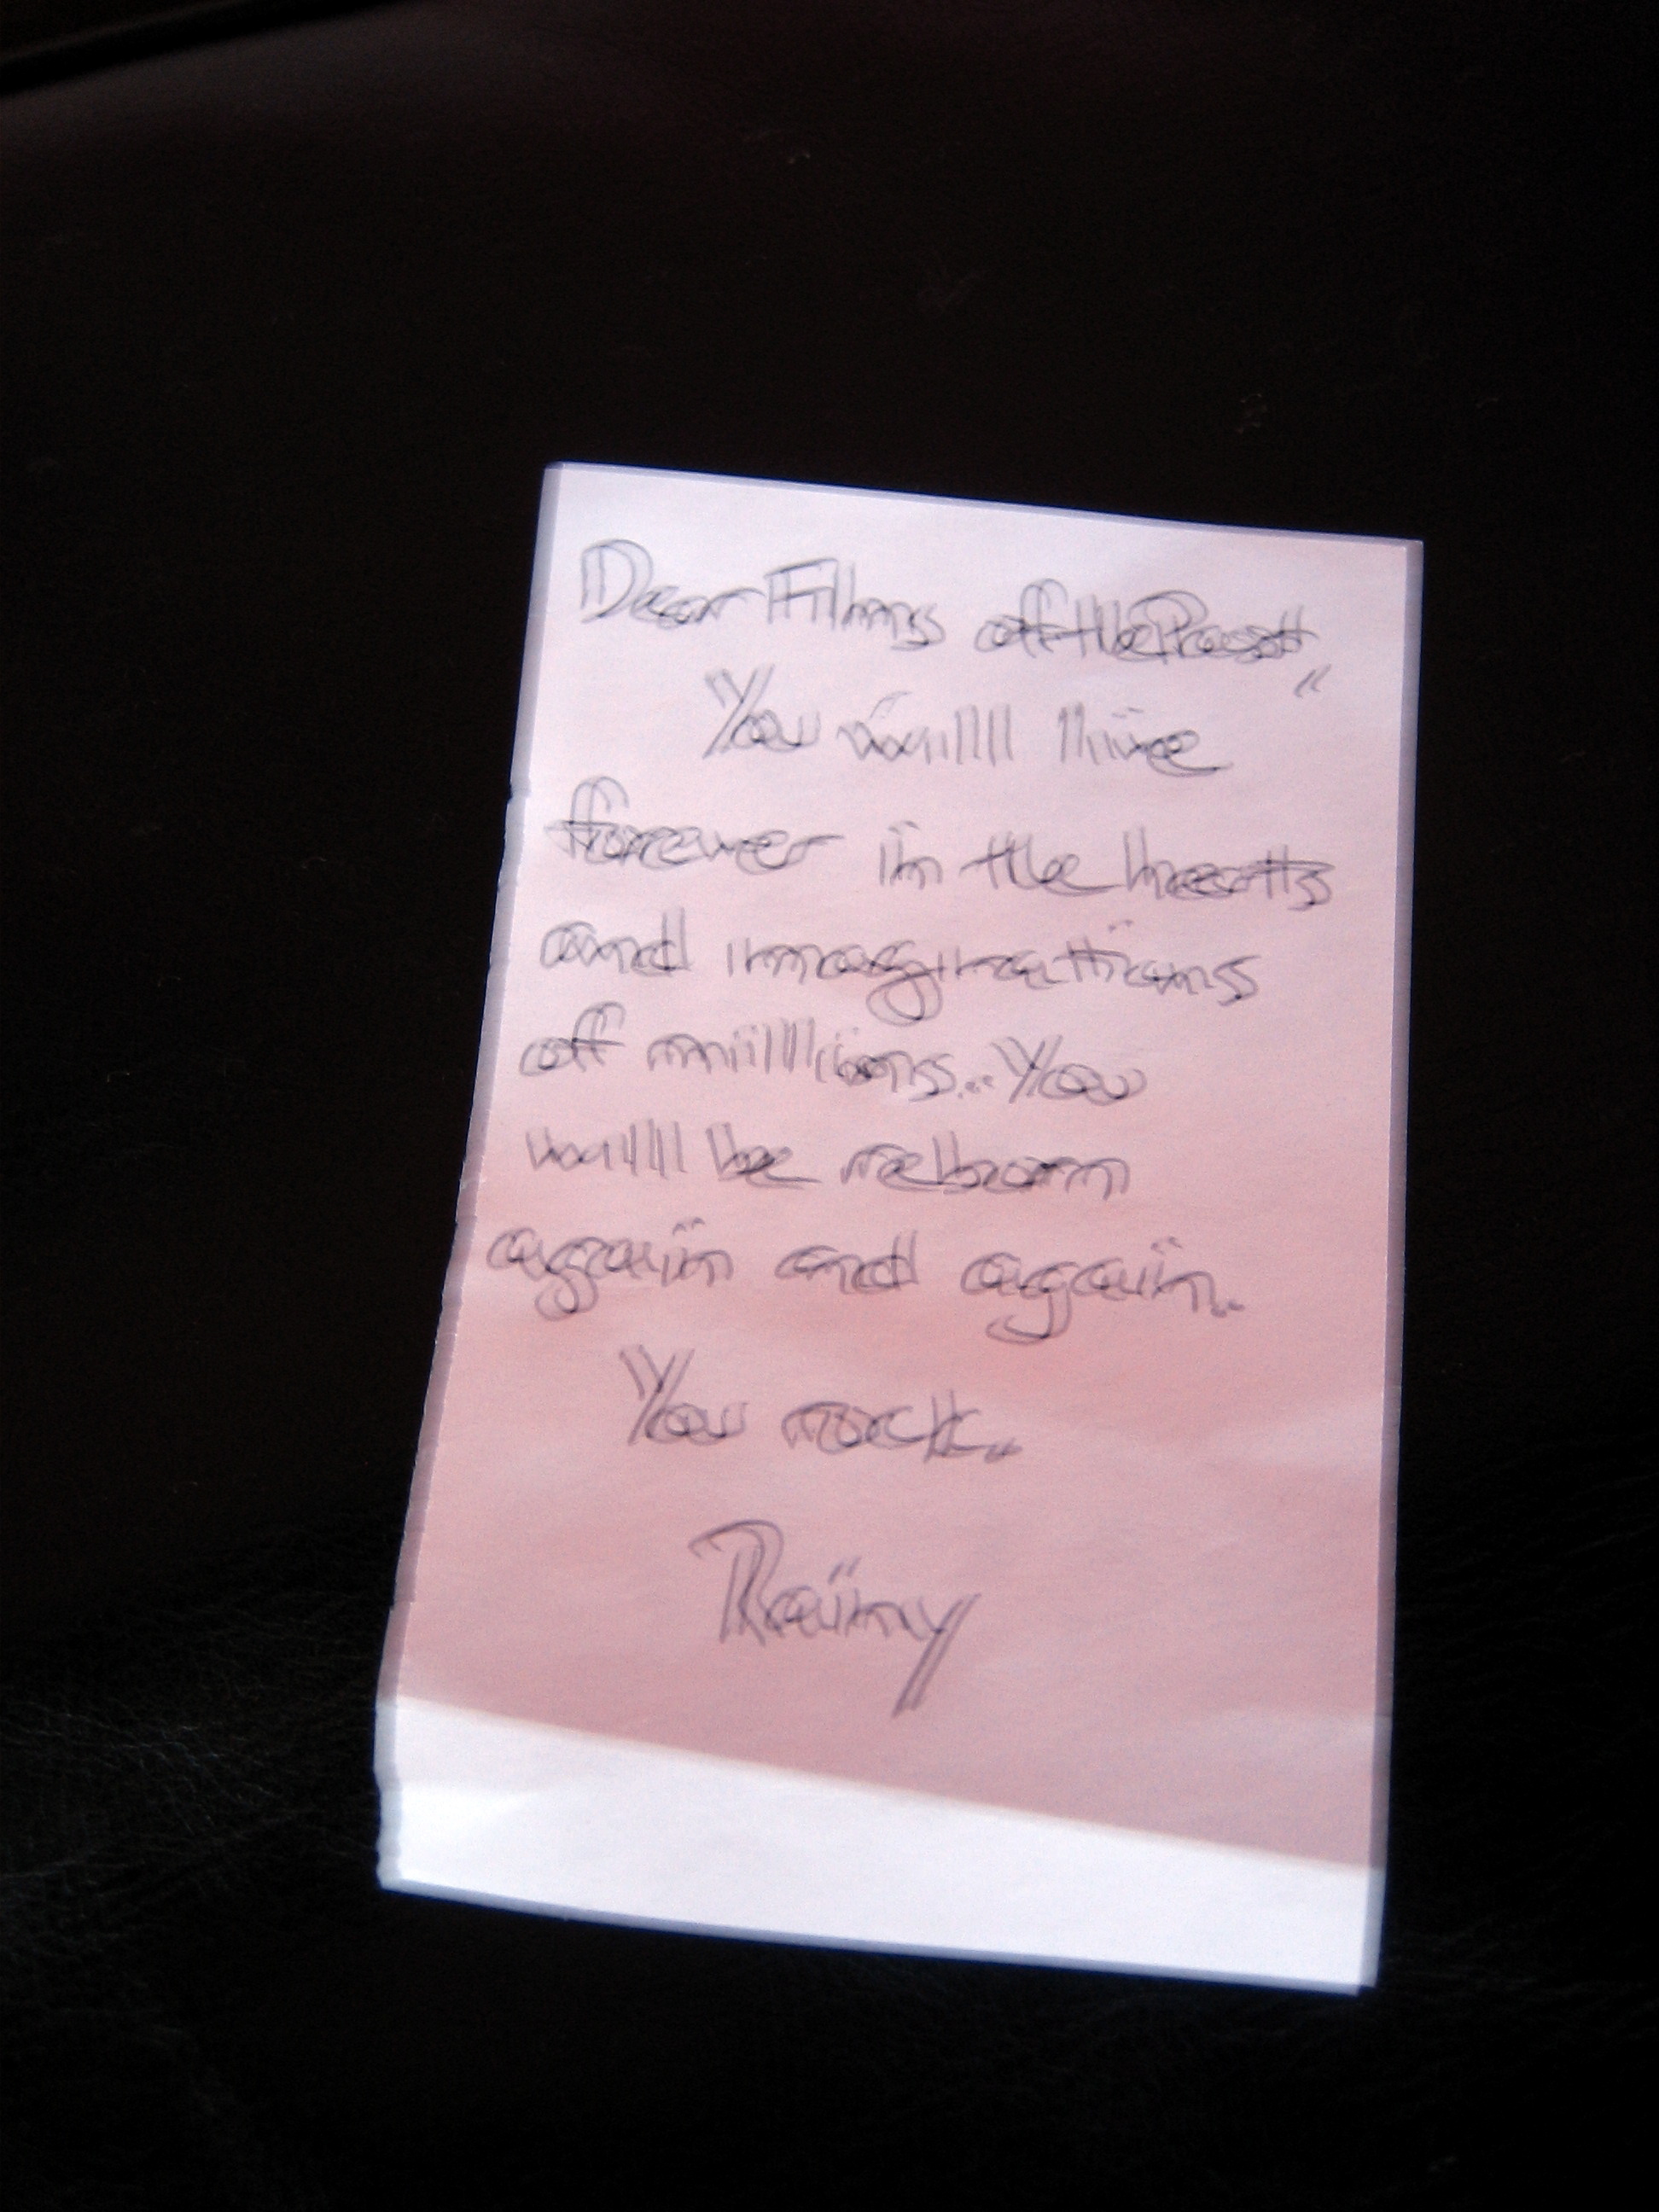 Dear Films of the Past,
You will live
forever in the hearts
and imaginations
of millions. You
will be reborn
again and again.
You rock.
Rainy